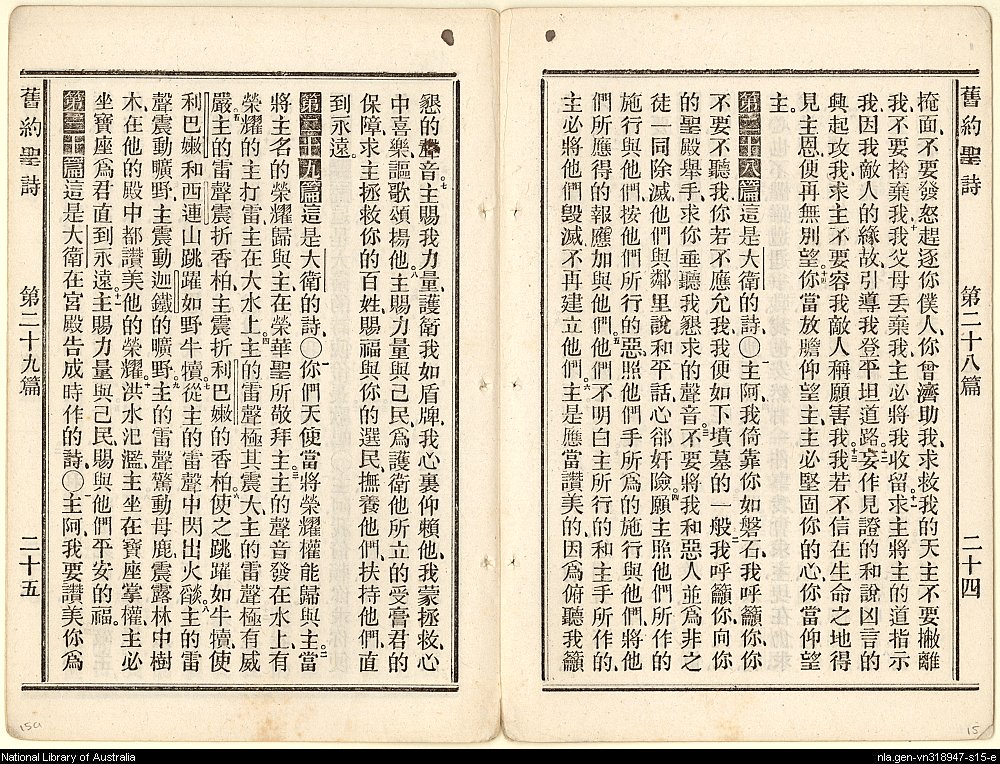 舊約聖詩 第二十八篇 二十四
掩面、不要發怒趕逐你僕人、你曾濟助我、求救我的天主不要撇離
我、不要捨棄我、我父母丟棄我、主必將我收留、求主將主的道指示
我、因我敵人的緣故、引導我登平坦道路、妄作見證的和說凶言的
興起攻我、求主不要容我敵人稱願害我、我若不信在生命之地得
見主恩、便再無別望、你當放膽仰望主、主必堅固你的心、你當仰望
主。
第二十八篇 這是大衛的詩、〇主阿、我倚靠你如磐石、我呼籲你、你
不要不聽我、你若不應允我、我便如下墳墓的一般、我呼籲你、向你
的聖殿舉手、求你垂聽我懇求的聲音、不要將我和惡人並爲非之
徒、一同除滅、他們與鄰里說和平話、心郤奸險、願主照他們所作的
施行與他們、按他們所行的惡、照他們手所爲的施行與他們、將他
們所應得的報應加與他們、他們不明白主所行的和主手所作的、
主必將他們毀滅、不再建立他們、主是應當讚美的、因爲俯聽我籲
懇的聲音、主賜我力量、護衛我如盾牌、我心裏仰賴他、我蒙拯救、心
中喜樂、謳歌頌揚他、主賜力量與己民、爲護衛他所立的受膏君的
保障、求主拯救你的百姓、賜福與你的選民、撫養他們、扶持他們、直
到永遠。
第二十九篇 這是大衛的詩、〇你們天使當將榮耀權能歸與主、當
將主名的榮耀歸與主、在榮華聖所敬拜主、主的聲音發在水上、有
榮耀的主打雷、主在大水上、主的雷聲極其震大、主的雷聲極有威
嚴、主的雷聲震折香柏、主震折利巴嫩的香柏、使之跳躍如牛犢、使
利巴嫩和西連山跳躍如野牛犢、從主的雷聲中閃出火燄、主的雷
聲震動曠野、主震動迦鐵的曠野、主的雷聲驚動母鹿、震露林中樹
木、在他的殿中都讚美他的榮耀、洪水氾濫、主坐在寶座掌權、主必
坐寶座爲君、直到永遠、主賜力量與己民、賜與他們平安的福。
第三十篇 這是大衛在宮殿告成時作的詩、〇主阿、我要讚美你、爲
舊約聖詩 第二十九篇 二十五
15a
15
National Library of Australia
nla.gen-vn318947-s15-e